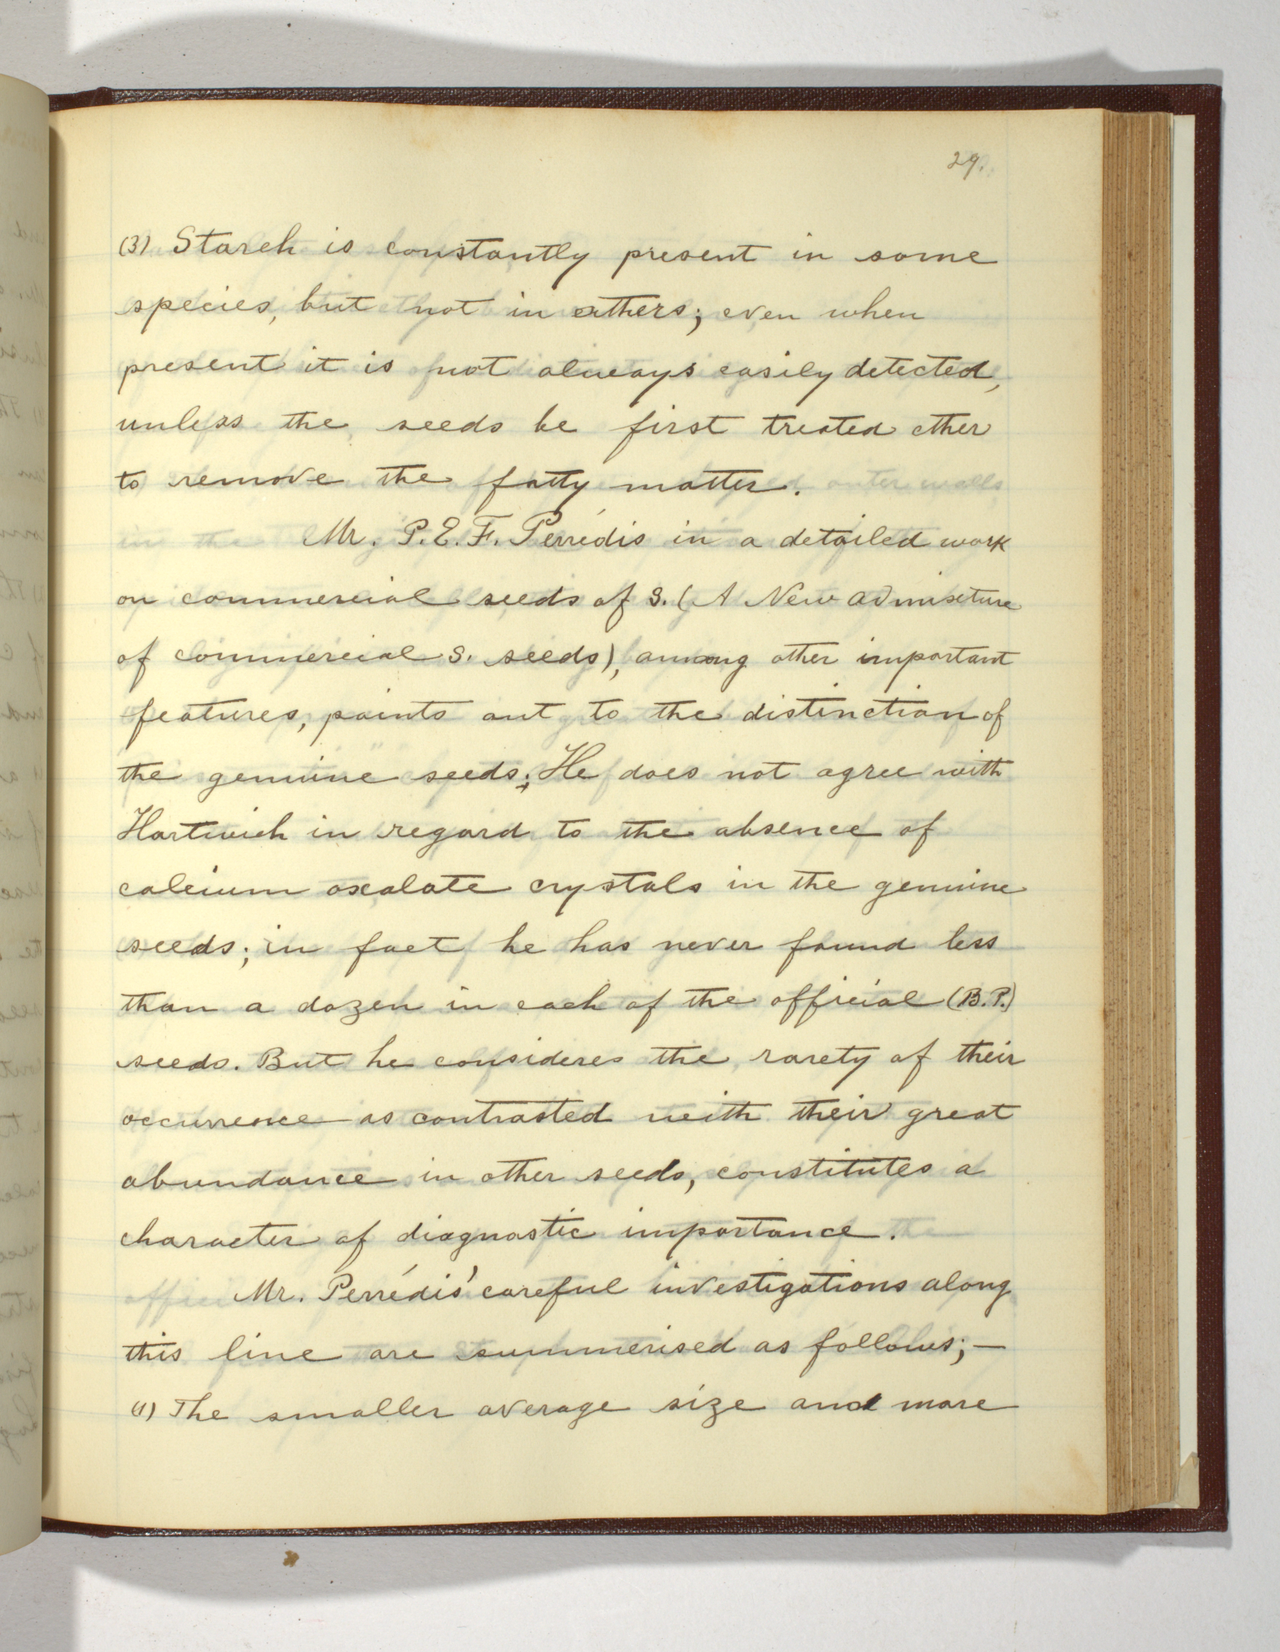 29.
(3) Starch is constantly present in some
species, but not in others; even when
present it is not always easily detected,
unless the seeds be first treated ether
to remove the fatty matter.
Mr. P.E.F. Perrédis in a detailed work
on commercial seeds of S. (A New admixture
of commercial S. seeds), among other important
features, points out to the distinction of
the genuine seeds; He does not agree with
Hartwich in regard to the absence of
calcium oxalate crystals in the genuine
seeds; in fact he has never found less
than a dozen in each of the official (B.P.)
seeds. But he consideres the rarety of their
occurrence as contrasted with their great
abundance in other seeds, constitutes a
character of diagnostic importance.
Mr. Perrédis' careful investigations along
this line are summerised as follows;—
(1) The smaller average size and more